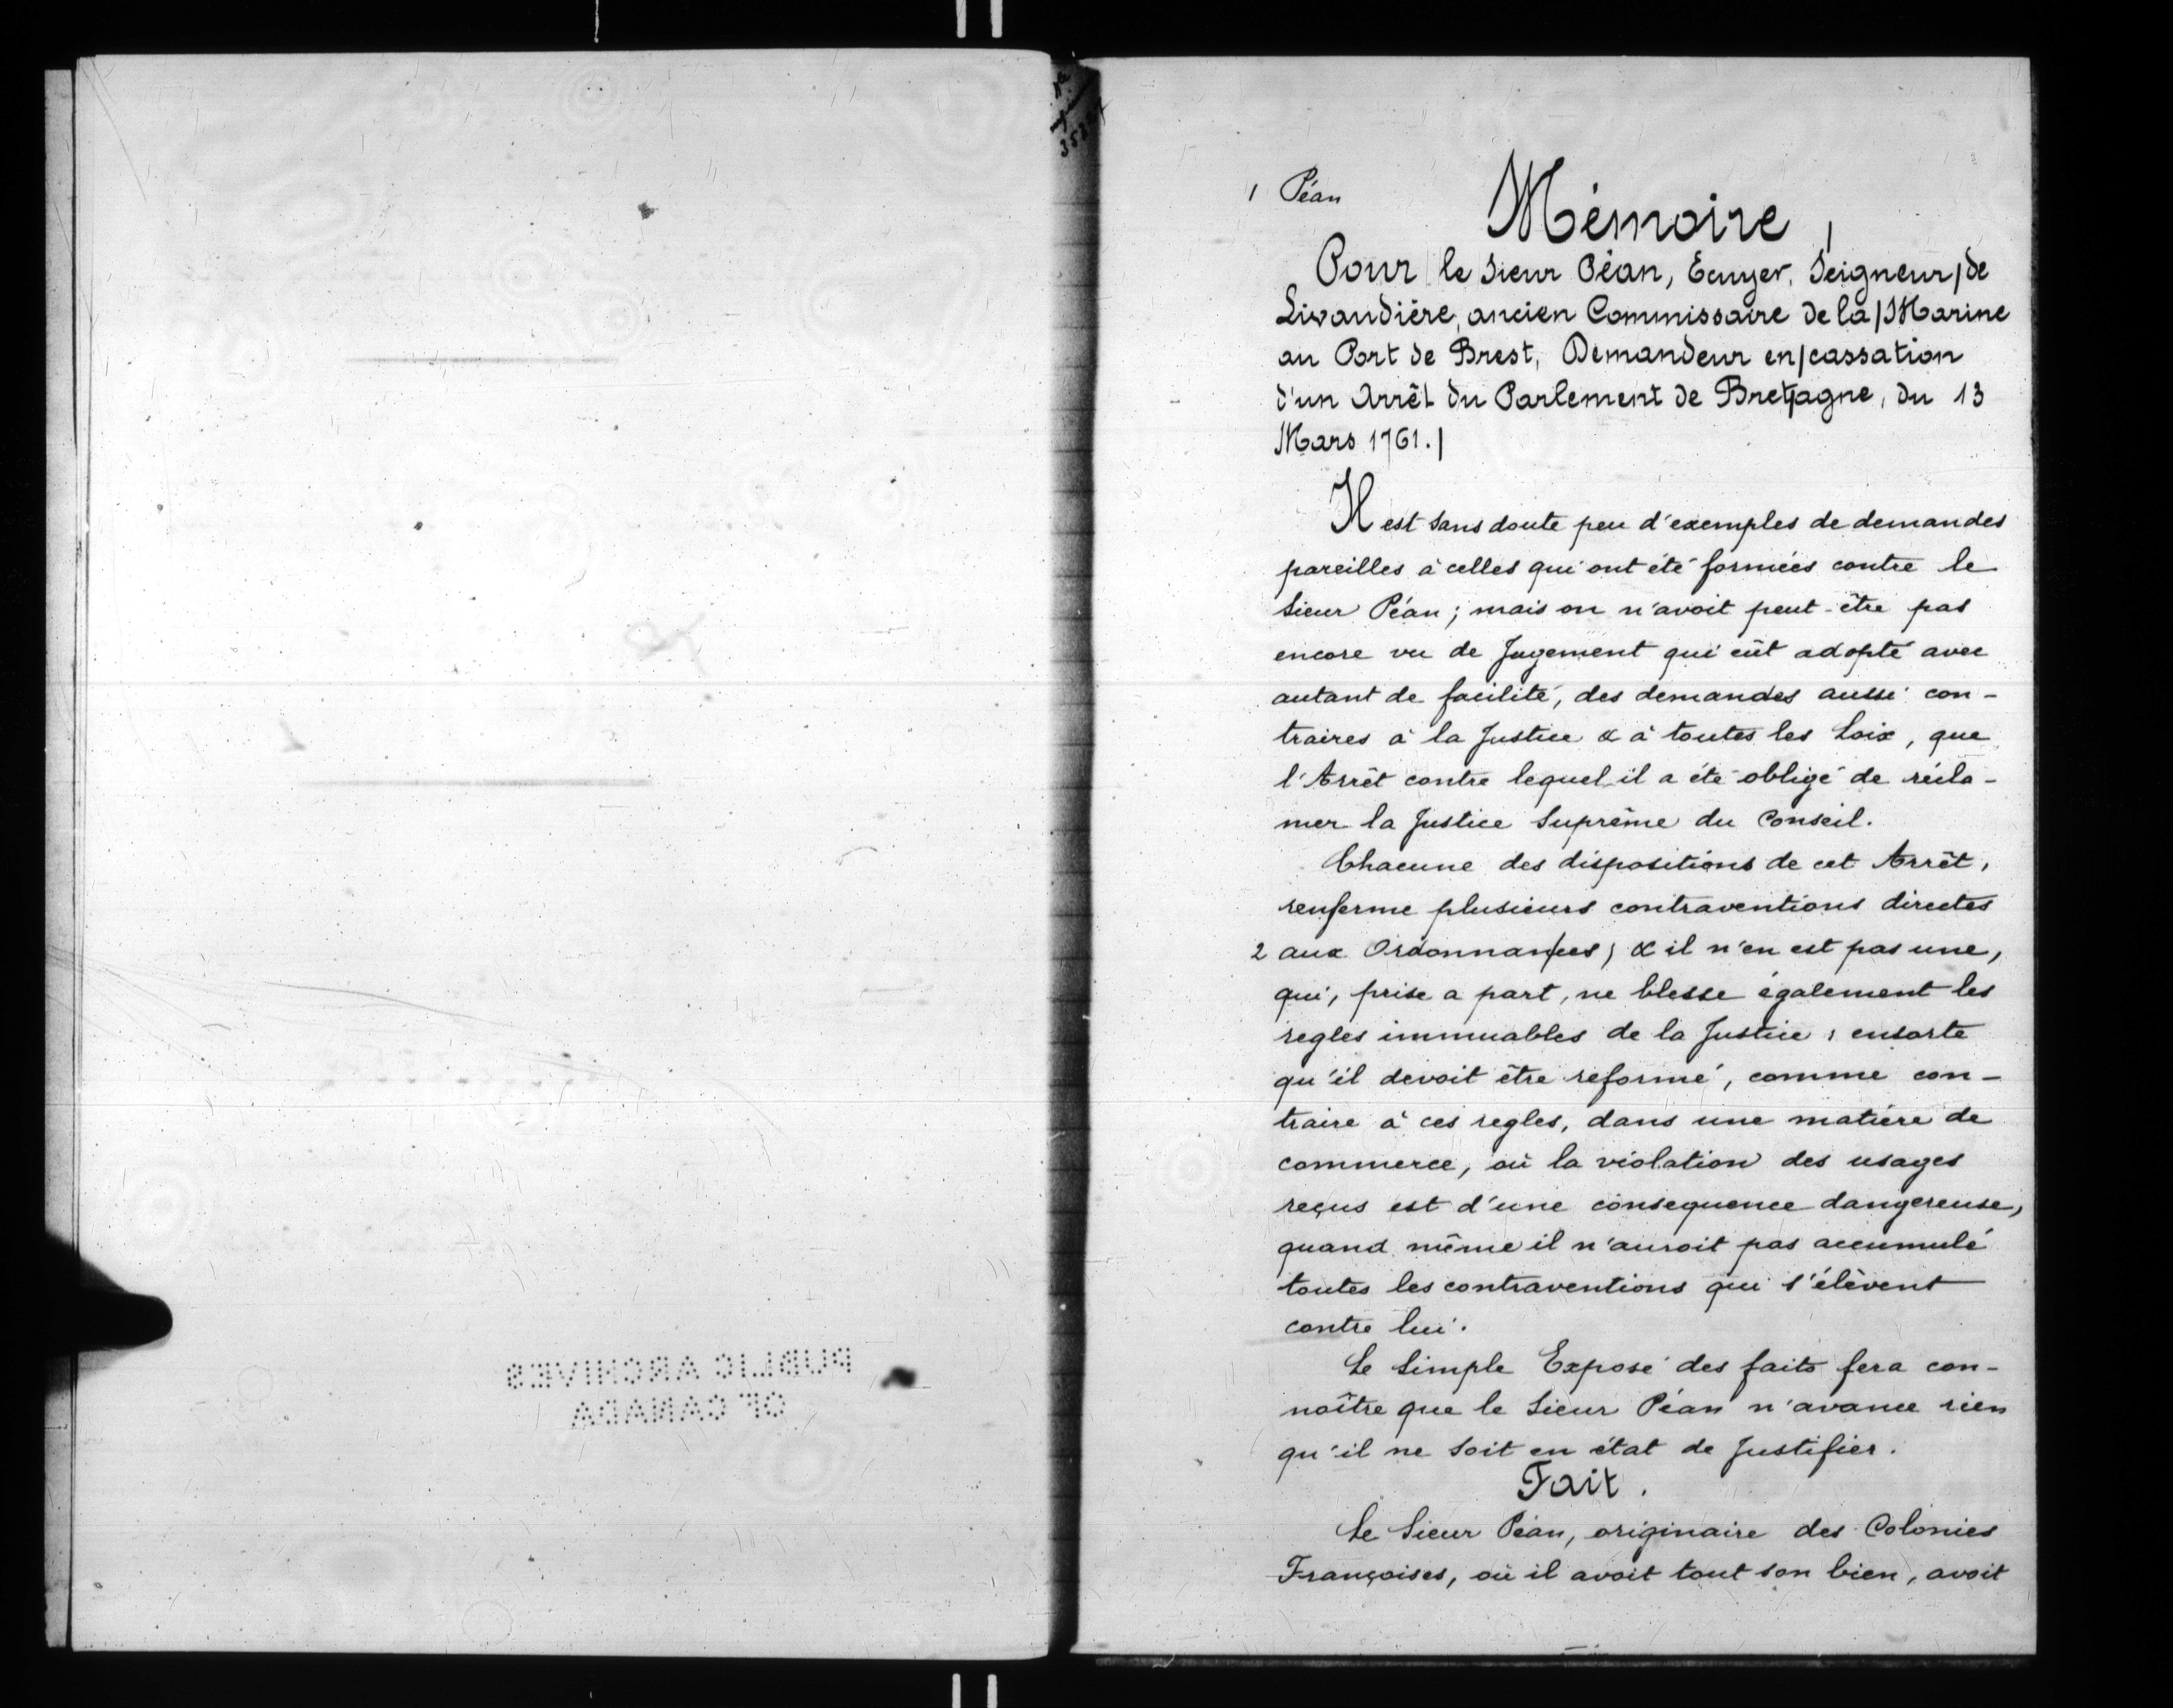 PUBLIC ARCHIVES
OF CANADA
1 Péan
Mémoire |
Pour le Sieur Péan, Ecuyer, Seigneur | de
Livaudière, ancien Commissaire de la | Marine
au Port de Brest, Demandeur en | cassation
d'un Arrêt du Parlement de Bret|agne, du 13
Mars 1761. |
Il est sans doute peu d'exemples de demandes
pareilles à celles qui ont été formées contre le
Sieur Péan; mais on n'avoit peut-être pas
encore vu de Jugement qui eût adopté avec
autant de facilité, des demandes aussi con-
traires à la Justice & à toutes les Loix, que
l'Arrêt contre lequel il a été obligé de récla-
mer la Justice Suprême du Conseil.
Chacune des dispositions de cet Arrêt,
renferme plusieurs contraventions directes
2 aux Ordonnan/ces; & il n'en est pas une,
qui, prise a part, ne blesse également les
regles immuables de la Justice; ensorte
qu'il devoit être réformé, comme con-
traire à ces regles, dans une matière de
commerce, où la violation des usages
reçus est d'une consequence dangereuse,
quand même il n'auroit pas accumulé
toutes les contraventions qui s'élèvent
contre lui.
Le Simple Exposé des faits fera con-
noître que le Sieur Péan n'avance rien
qu'il ne soit en état de Justifier.
Fait.
Le Sieur Péan, originaire des Colonies
Françoises, où il avoit tout son bien, avoit